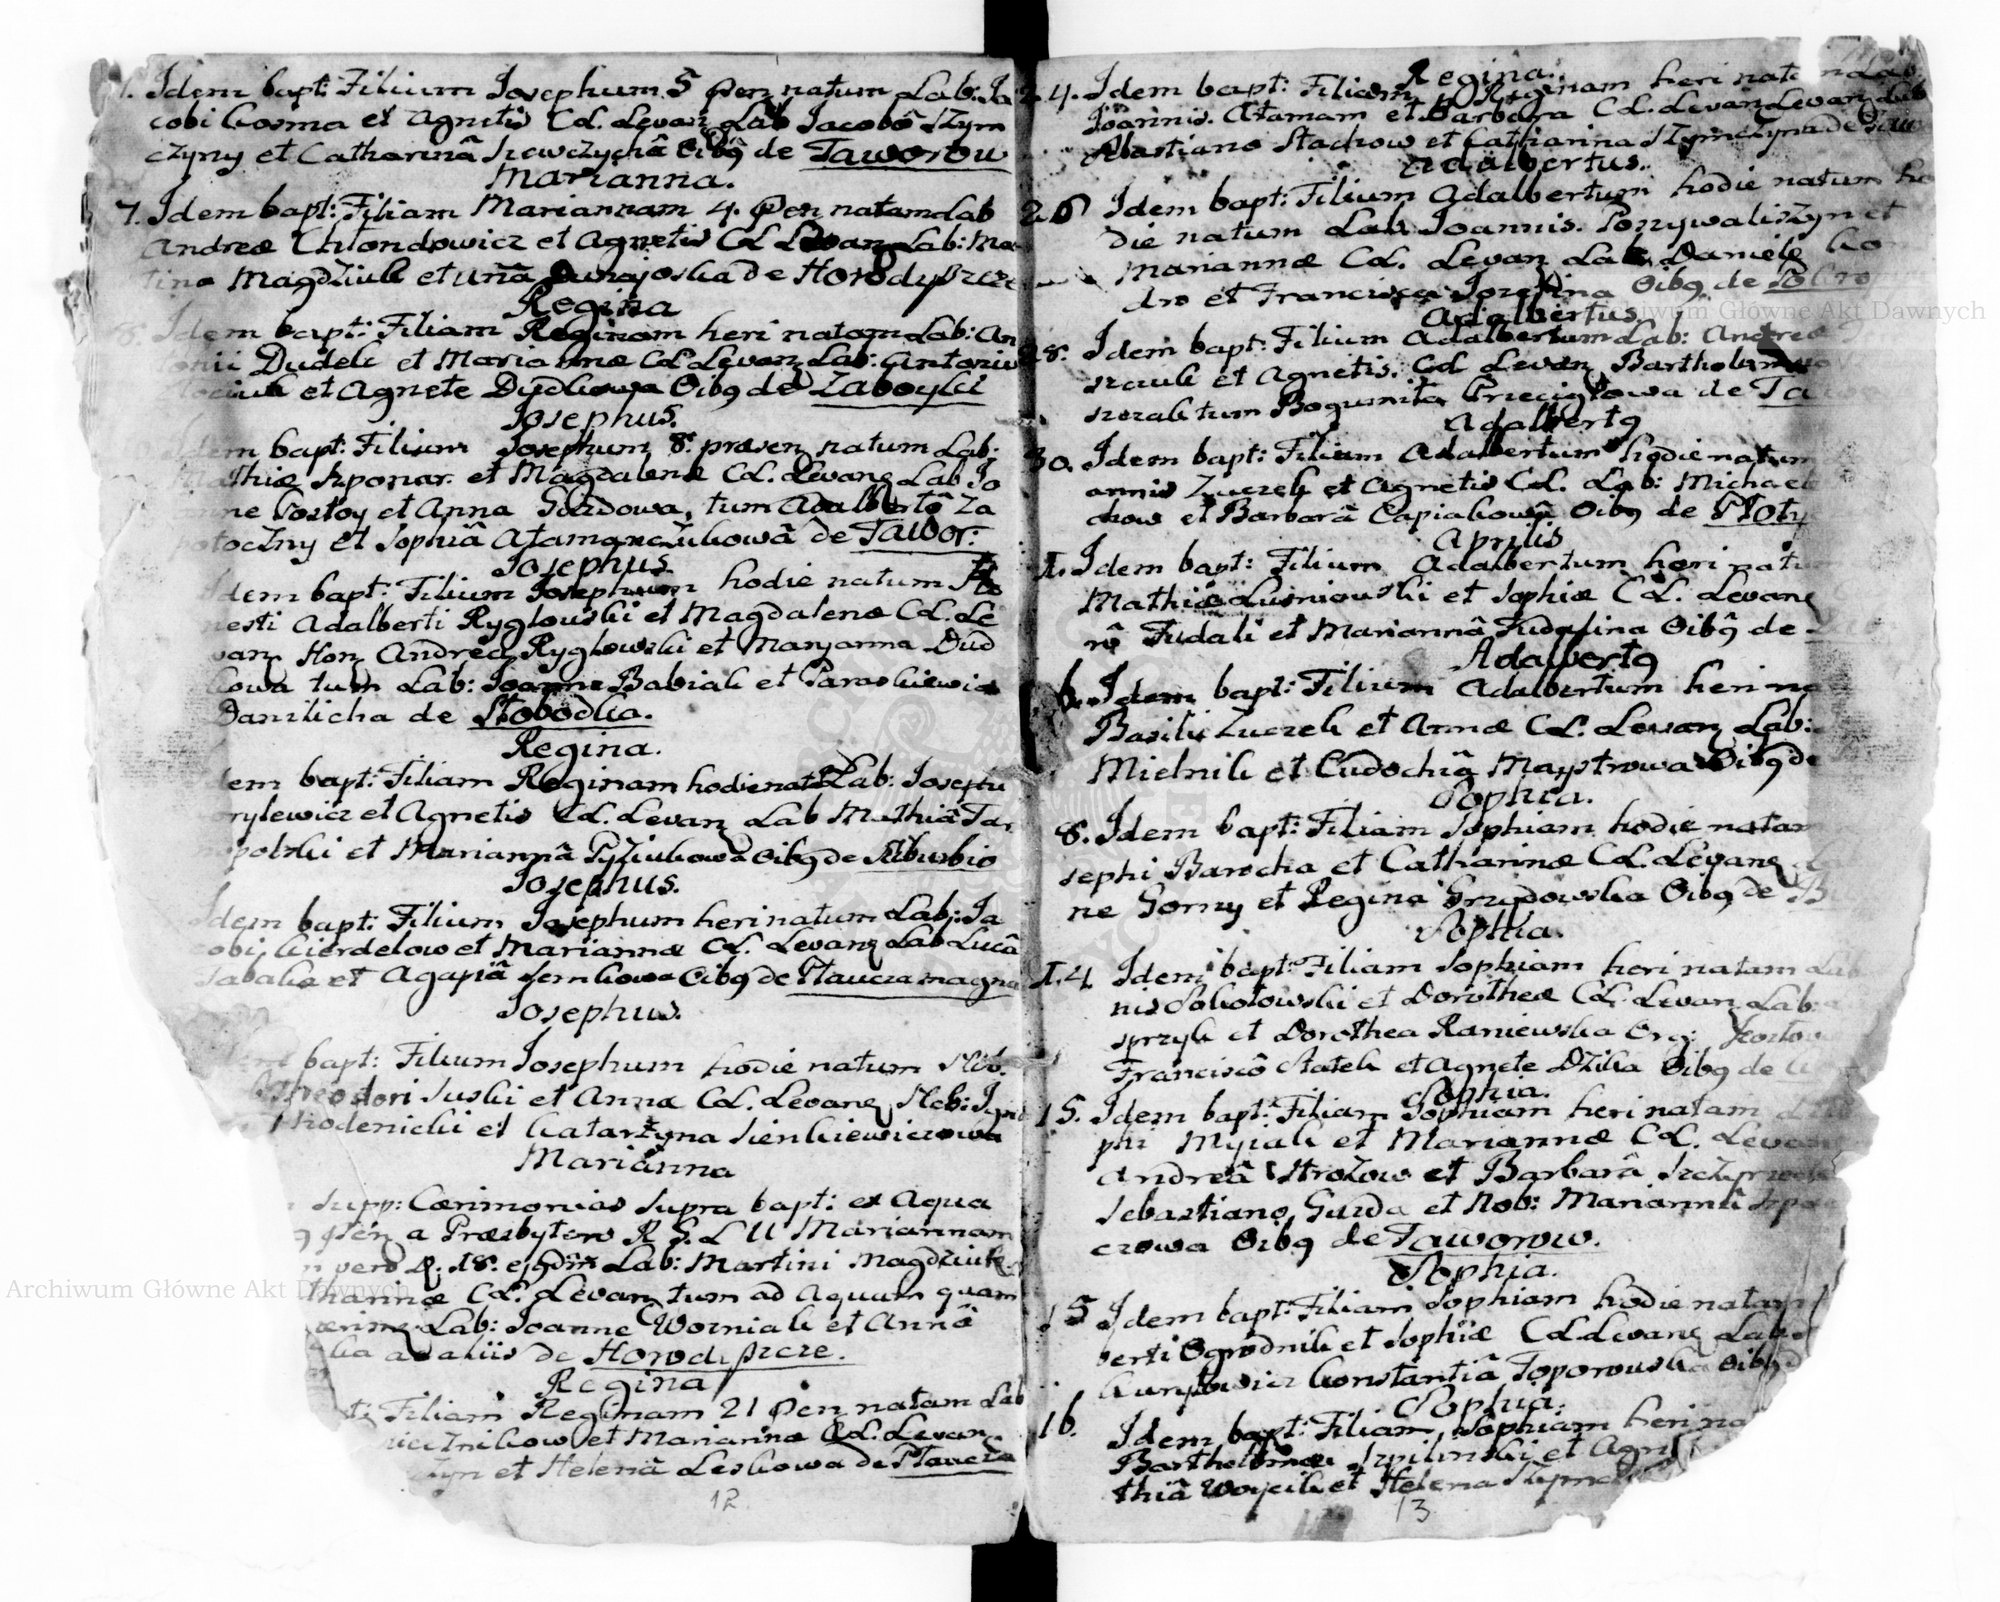 Idem bapt: Filium Josephum 5 pen natum Lab: Ja
cobi Cosma et Agnetis CL. Levan Lab Jacobô Szym
czyny et Catharinâ Szewczychâ Oibq de Taworow
Marianna.
7. Idem bapt: Filiam Mariannam 4. pen natam Lab
Andreæ Chlondowicz et Agnetis CL Levan Lab: Mar
tino Magdziuk et de Horodyszcze
Regina
8. Idem bapt: Filiam Reginam heri natam Lab: An
tonii Dudek et Mariannæ CL Levan Lab: Antonio
et Agnete Dudkowa Oibq de Zaboyki
Josephus.
Idem bapt: Filium Josephum 8. præsen natum Lab:
Mathiæ Szponar et Magdalenæ CL. Levanq Lab Jo
anne Postoy et Anna Gozdowa, tum Adalbertô Za
potoczny et Sophiâ Atamanczukowâ de Tawor:
Josephus
Idem bapt: Filium Josephum hodie natum Ho
nesti Adalberti Ryglowski et Magdalenæ CL. Le
van Hon Andrea Ryglowski et Maryanna Dud
kowa tum Lab: Joanne Babiak et Paraskiewia
Danilicha de Slobodka.
Regina.
Idem bapt: Filiam Reginam hodie nata Lab: Josephi
rylewicz et Agnetis CL. Levan Lab Mathiâ Tar
nopolski et Mariannâ Pyziukowa Oibq de Suburbio
Josephus.
Idem bapt: Filium Josephum heri natum Lab: Ja
cobi Kierdelow et Mariannæ CL. Levanq Lab Lucâ
Tabaka et Agapiâ Semkowa Oibq de Plaucza magna
Josephus.
Idem bapt: Filium Josephum hodie natum Nob.
Theodori Suski et Annæ CL. Levanq Nob: Igna
Hrodenicki et Katarzyna Sienkiewiczowa
Marianna
Supp: Cærimonias supra bapt: ex Aqua
pen a Præsbytero R S. L U Mariannam
vero D. 18. ejqdm Lab: Martini Magdziuk
tharinæ CL. Levan tum ad Aquam quam
Lab: Joanne Wozniak et Annâ
ad aliis de Horodiszcze.
Regina
Filiam Reginam 21 pen natam Lab
znikow et Marianna CL. Levan
czyn et Helenâ Leskowa de Plaucza
12
Regina.
24. Idem bapt: Filiam Reginam heri natam Lab
Joannis. Atamam et Barbara CL. Levan Levan Lab
Sebastiano Stachow et Catharina Szymczyna de Taw
Adalbertus.
26 Idem bapt: Filium Adalbertum hodie natum ho
die natum Lab Joannis. Porzywaliszyn et
Mariannæ CL. Levan Lab Daniele Ko
dro et Francisca Jozefina Oibq de Pokro
Adalbertus
28. Idem bapt: Filium Adalbertum Lab: Andreæ
szauk et Agnetis. CL Levan Bartholomæo
szozak tum Bogumila Przeciglowa de Ta
Adalbertq
30. Idem bapt: Filium Adalbertum hodie natum
annis Zuczek et Agnetis CL. Lab: Michaele
chow et Barbarâ Capiakowâ Oibq de Ploty
Aprilis
1. Idem bapt: Filium Adalbertum heri natu
Mathiæ Lusniowski et Sophiæ CL. Levanq
nô Fudali et Mariannâ Fudalina Oibq de
Adalbertq
6. Idem bapt: Filium Adalbertum heri na
Basilii Zuczek et Annæ CL. Levan Lab:
Mielnik et Eudochiâ Maystrowa Oibq de
Sophia.
8. Idem bapt: Filiam Sophiam hodie natam
sephi Barocha et Catharinæ CL. Levanq
ne Gorny et Regina Grzydowska Oibq de
Sophia.
14. Idem bapt: Filiam Sophiam heri natam Lab
nis Sokolowski et Dorotheæ CL. Levan Lab:
sprzyk et Dorothea Raniewska Org: Kozlow
Franciscô Statek et Agnete Dzika Oibq de
Sophia.
15. Idem bapt: Filiam Sophiam heri natam
phi Mysiak et Mariannæ CL. Levan
Andreâ Strozow et Barbarâ
Sebastiano Guzda et Nob: Mariannâ
czowa Oibq de Taworow.
Sophia.
15 Idem bapt: Filiam Sophiam hodie natam
berti Ogrodnik et Sophiæ CL Levanq Lab
Constantiâ Toporowska Oibq d
Sophia.
16. Idem bapt: Filiam Sophiam heri na
Bartholomæi Szpilinski et Agn
thiâ Woycik et Helena Szym
13
Archiwum Główne Akt Dawnych
Archiwum Główne Akt Dawnych